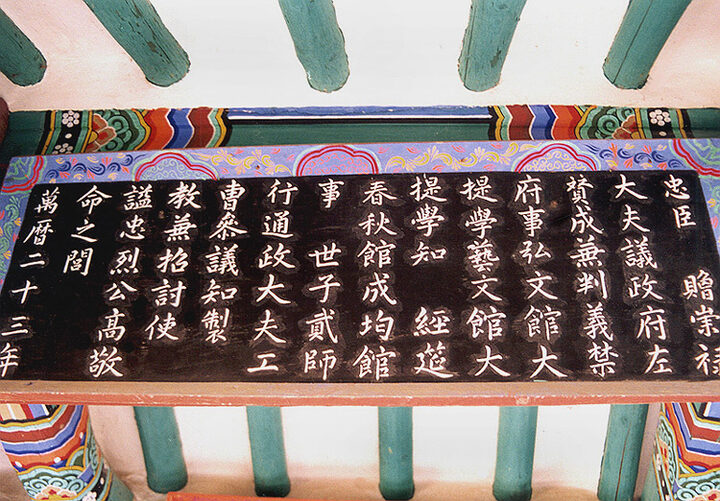 忠臣 贈崇禄
大夫議政府左
賛成兼判義禁
府事弘文館大
提學藝文館大
提學知 經筵
春秋館成均館
事 世子貳師
行通政大夫工
曹參議知製
教兼招討使
諡忠烈公高敬
命之閭
萬曆二十三年